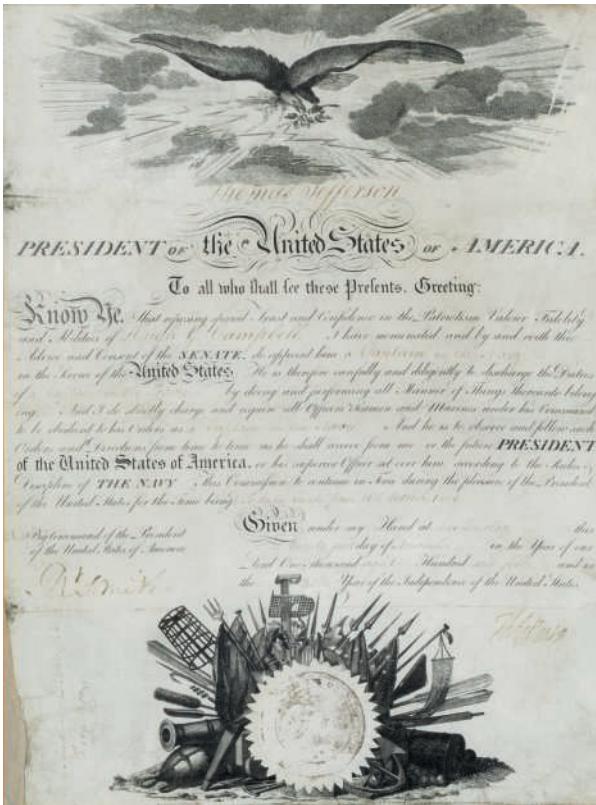 Thomas Jefferson
PRESIDENT OF the United States OF AMERICA.
To all who shall see these Presents, Greeting:
Know Ye, That reposing special Trust and Confidence in the Patriotism Valour Fidelity
and Abilities of Hugh G Campbell I have nominated and by and with the
Advice and Consent of the SENATE, do appoint him a Captain in the Navy
in the Service of the United States. He is therefore carefully and diligently to discharge the Duties
of by doing and performing all Manner of Things thereunto belong
ing. And I do strictly charge and require all Officers Seamen and Marines under his Command
to be obedient to his Orders as And he is to observe and follow such
Orders and Directions from time to time as he shall receive from me or the future PRESIDENT
of the United States of America, or his superior Officer set over him according to the Rules &
Discipline of THE NAVY. This Commission to continue in Force during the pleasure of the President
of the United States for the time being
By Command of the President
of the United States of America
Given under my Hand at this
day of in the Year of our
Lord One thousand Hundred and in
the Year of the Independence of the United States.
Rt Smith
Th Jefferson